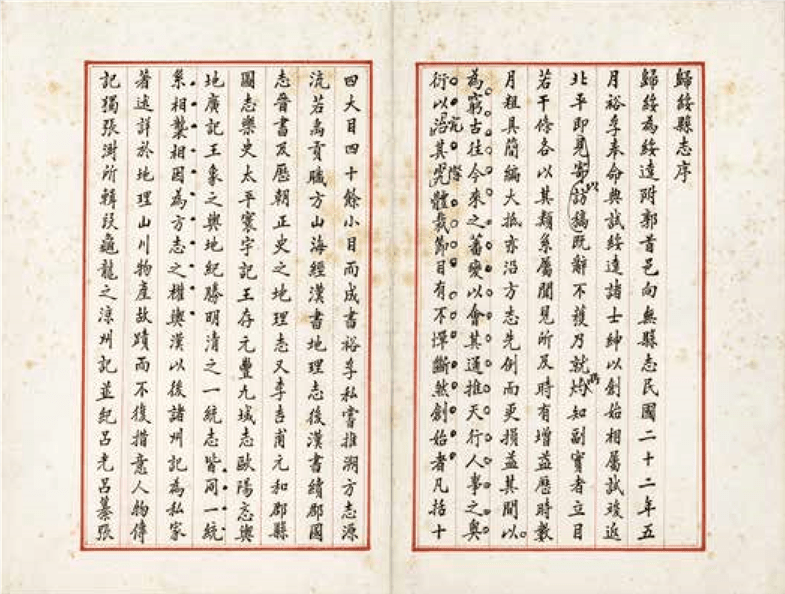 歸綏縣志序
歸綏為綏遠附郭首邑向無縣志民國二十二年五
月裕孚奉命典試綏遠諸士紳以創始相屬試竣返
北平即見寄以訪稿既辭不獲乃就所灼知副實者立目
若干條各以其類系屬聞見所及時有增益歷時數
月粗具簡編大抵亦沿方志先例而更損益其間以
為窮古往今來之蕃變以會其通推天行人事之奧
衍以究其際體裁節目有不憚斷然創始者凡括十
四大目四十餘小目而成書裕孚私嘗推溯方志源
流若禹貢職方山海經漢書地理志後漢書續郡國
志晉書及歷朝正史之地理志又李吉甫元和郡縣
圖志樂史太平寰宇記王存元豐九域志歐陽忞輿
地廣記王象之輿地紀勝明清之一統志皆同一統
系相襲相因為方志之權輿漢以後諸州記為私家
著述詳於地理山川物產故蹟而不復措意人物傳
記獨張澍所輯段龜龍之涼州記並紀呂光呂纂張